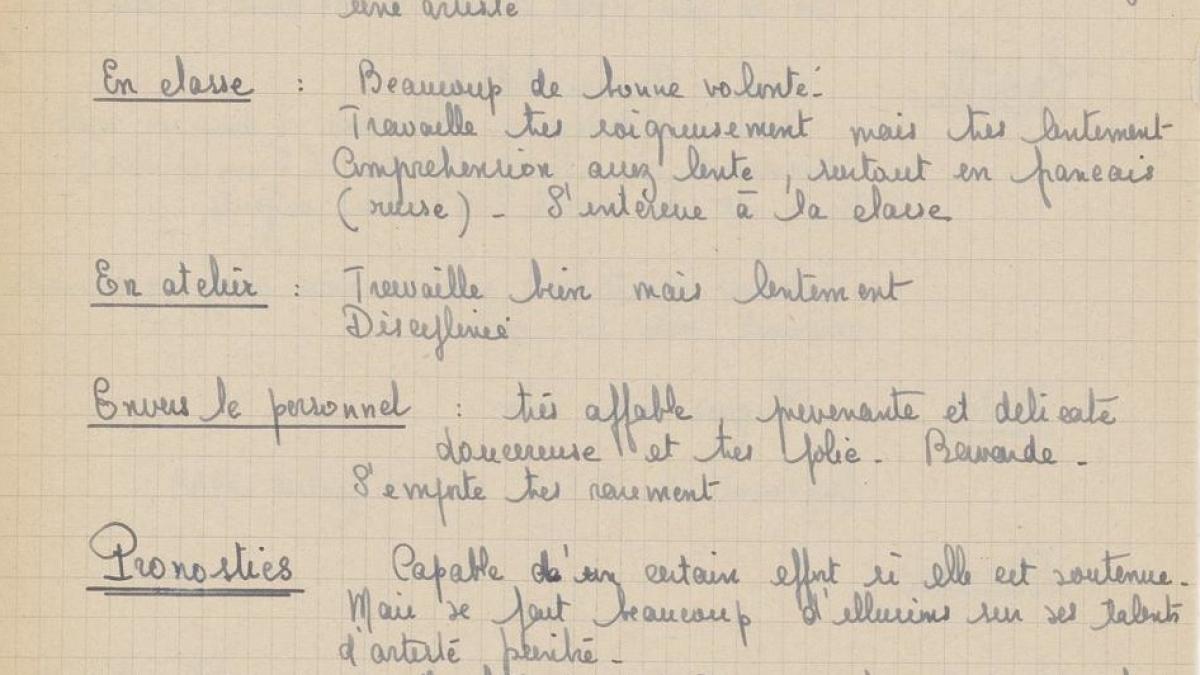 une artiste
En classe : Beaucoup de bonne volonté.
Travaille très soigneusement mais très lentement
Compréhension assez lente, surtout en français
(russe) - S'intéresse à la classe
En atelier : Travaille bien mais lentement
Disciplinée
Envers le personnel : très affable, prévenante et délicate
doucereuse et très polie. Bavarde -
S'emporte très rarement
Pronostics Capable d'un certain effort si elle est soutenue.
Mais se fait beaucoup d'illusions sur ses talents
d'artiste peintre -